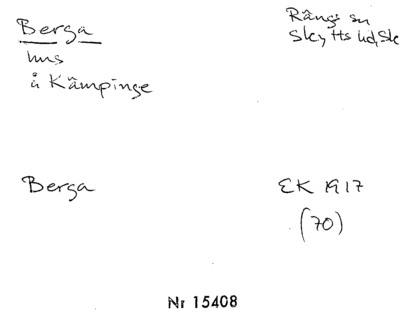 Berga
Rängs sn
Skytts hd, Sk
hus
å Kämpinge
Berga
EK 1917
(70)
Nr 15408